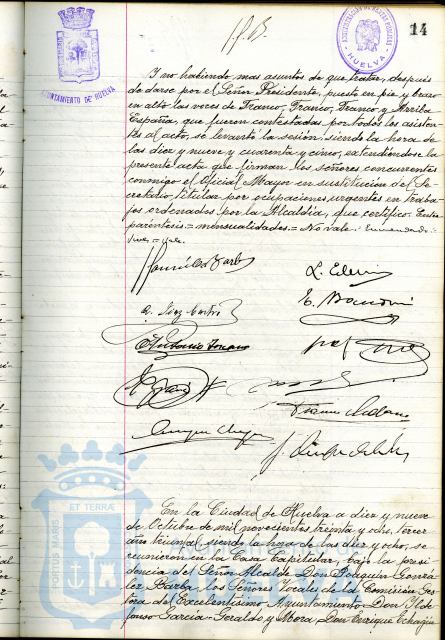 14
AYUNTAMIENTO DE HUELVA
HUELVA
Y no habiendo mas asuntos de que tratar, después
de darse por el Señor Presidente, puesto en pie y brazo
en alto las voces de Franco, Franco, Franco y Arriba
España, que fueron contestadas por todos los asisten-
tes al acto, se levantó la sesión siendo la hora de
las diez y nueve y cuarenta y cinco, extendiéndose la
presente acta que firman los señores concurrentes
conmigo el Oficial Mayor en sustitución del Se-
cretario titular por ocupaciones urgentes en traba-
jos ordenados por la Alcaldía, que certifico. Entre
paréntesis = mensualidades = No vale. Enmendado =
= Vale.
En la Ciudad de Huelva a diez y nueve
de Octubre de mil novecientos treinta y ocho, tercer
año triunfal, siendo la hora de las diez y ocho, se
reunieron en la Casa Capitular, bajo la presi-
dencia del Señor Alcalde Don Joaquín Gonzá-
lez Barba, los Señores Vocales de la Comisión Ges-
tora del Excelentísimo Ayuntamiento Don Ilde-
fonso García-Geraldo y Mora, Don Enrique Echagüe
PORTUS MARIS ET TERRAE